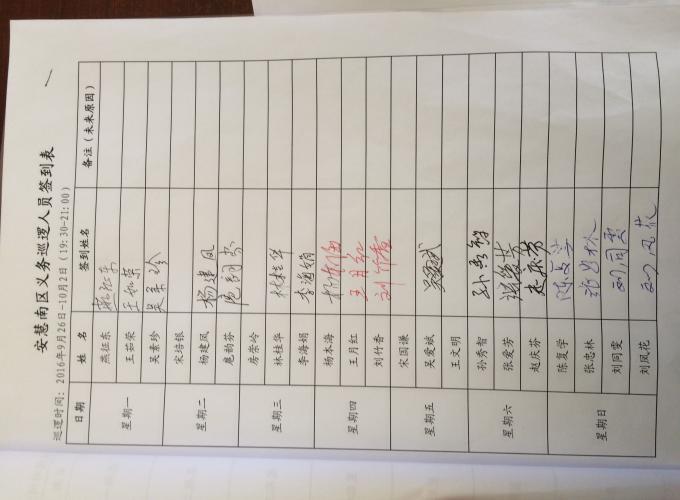 安慧南区义务巡逻人员签到表
巡逻时间：2016年9月26日-10月2日（19:30-21:00）
日期 姓 名 签到姓名 备注（未来原因）
星期一 燕征东 燕征东
王茹荣 王茹荣
吴素珍 吴素珍
星期二 宋培银
杨建凤 杨建凤
扈韵芬 扈韵芬
星期三 房崇岭
林桂华 林桂华
李海娟 李海娟
星期四 杨本海 杨本海
王月红 王月红
刘竹香 刘竹香
星期五 宋国谦
吴爱斌 吴爱斌
王文明
星期六 孙秀智 孙秀智
张爱芳 张爱芳
赵庆芬 赵庆芬
星期日 陈复学
张忠林 张忠林
刘同雯 刘同雯
刘凤花 刘凤花